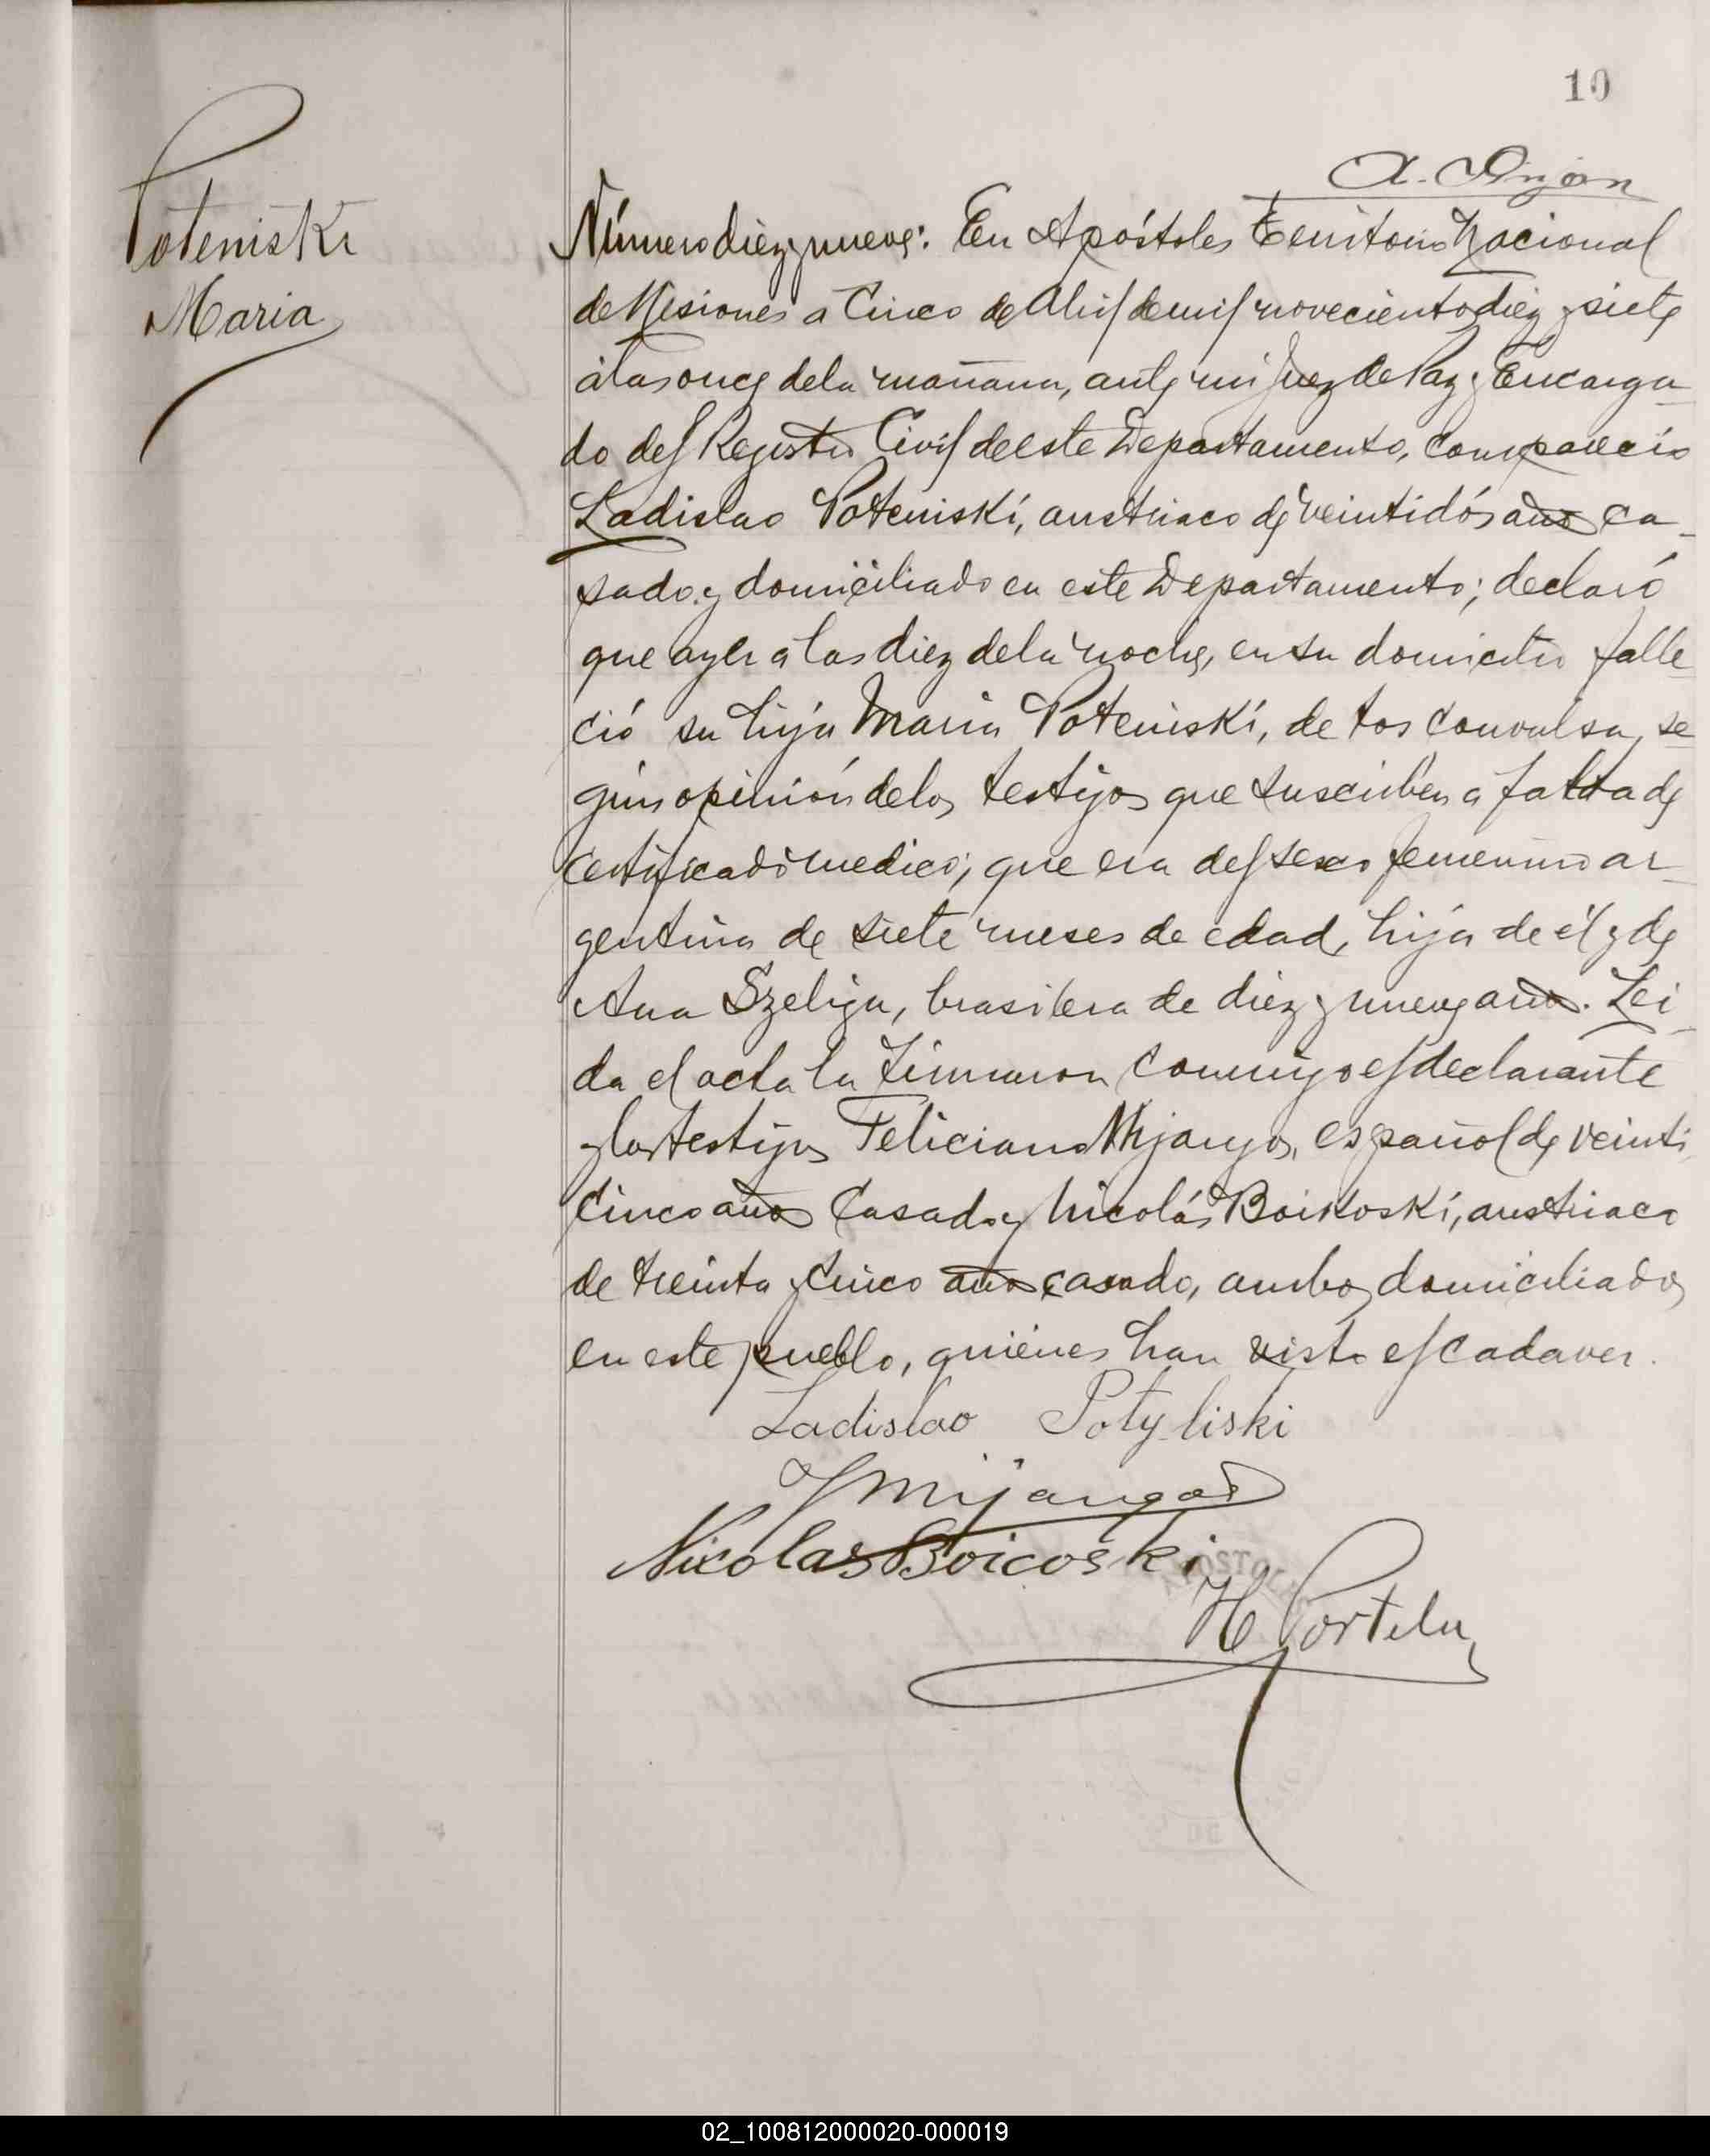 10
Poteniski
Maria
Número diez y nueve: En Apóstoles Territorio Nacional
de Misiones a Cinco de Abril de mil novecientos diez y siete
a las once de la mañana, ante mi Juez de Paz y Encarga-
do del Registro Civil de este Departamento, compareció
Ladislao Poteniski, austriaco de veintidós años ca-
sado y domiciliado en este Departamento; declaró
que ayer a las diez de la noche, en su domicilio falle-
ció su hija Maria Poteniski, de tos convulsa, se-
gún opinión de los testigos que suscriben a falta de
certificado medico; que era del sexo femenino ar-
gentina de siete meses de edad, hija de él y de
Ana Szeliga, brasilera de diez y nueve años. Lei-
da el acta la firmaron conmigo el declarante
y los testigos Feliciano Mijangos, español de veinti
cinco años casado y Nicolás Boikoski, austriaco
de treinta y cinco años casado, ambos domiciliados
en este pueblo, quiénes han visto el cadaver.
Ladislao Potyliski
F Mijangos
Nicolas Boicoski
H Portela
DE
02_100812000020-000019